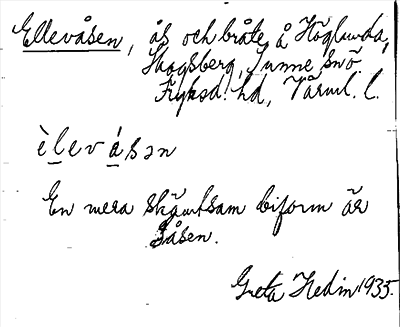 Ellevåsen, ås och bråte å Höglunda,
Skogsberg, Sunne snö
Fryksd. hd, Värml. l.
èlevásən
En mera skämtsam biform är
Gåsen.
Greta Hedin 1935.